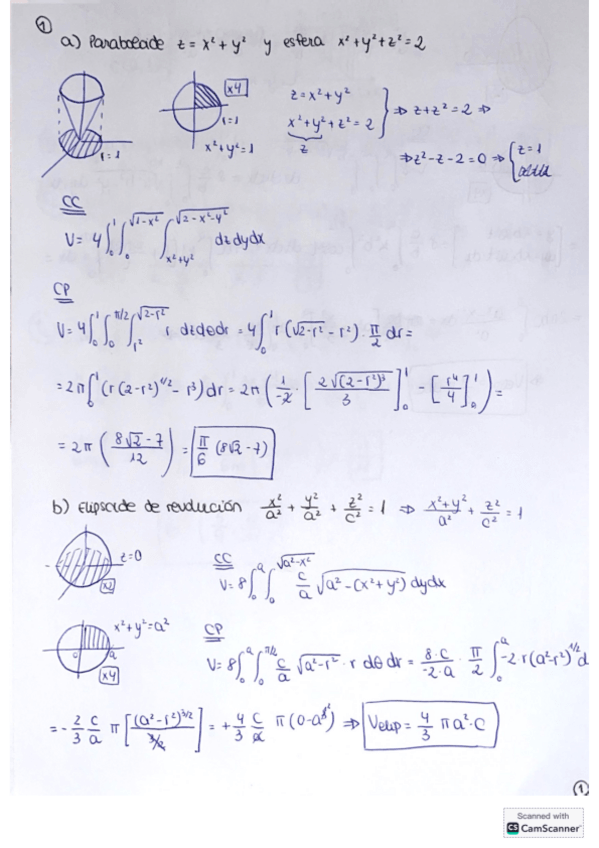 ①
a) Paraboloide z = x² + y² y esfera x² + y² + z² = 2
x4
r=1
r=1
x²+y²=1
z = x²+y²
x²+y²+z² = 2
z
⇒ z+z² = 2 ⇒
⇒ z²-z-2=0 ⇒ { z=1
CC
V = 4∫₀¹∫₀^√(1-x²) ∫_(x²+y²)^√(2-x²-y²) dz dy dx
CP
V = 4∫₀¹∫₀^(π/2)∫_(r²)^√(2-r²) r dz dθ dr = 4∫₀¹ r(√(2-r²) - r²) · π/2 dr =
= 2π∫₀¹ (r(2-r²)^(1/2) - r³) dr = 2π ( 1/-2 · [ 2√(2-r²)³ / 3 ]₀¹ - [ r⁴/4 ]₀¹ ) =
= 2π ( (8√2 - 7)/12 ) = π/6 (8√2 - 7)
b) Elipsoide de revolución x²/a² + y²/a² + z²/c² = 1 ⇒ (x²+y²)/a² + z²/c² = 1
z=0
x2
CC
V = 8∫₀^a∫₀^√(a²-x²) c/a √(a²-(x²+y²)) dy dx
x²+y²=a²
0 a
x4
CP
V = 8∫₀^a∫₀^(π/2) c/a √(a²-r²) · r dθ dr = 8·c/-2·a · π/2 ∫₀^a -2·r(a²-r²)^(1/2) d
= -2/3 c/a π [ (a²-r²)^(3/2) / 3/2 ] = + 4/3 c/a π (0-a³) ⇒ V elip = 4/3 πa²·c
①
Scanned with
CS CamScanner